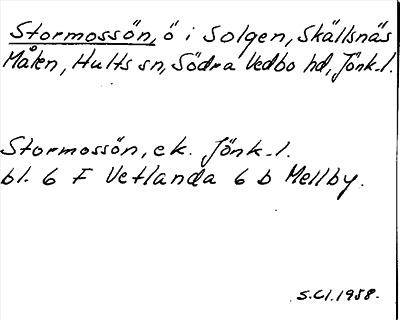 Stormossön, ö i Solgen, Skällsnäs
Målen, Hults sn, Södra Vedbo hd, Jönk.l.
Stormossön, ek. Jönk.l.
bl. 6 F Vetlanda 6 b Mellby.
S.Cl. 1958.